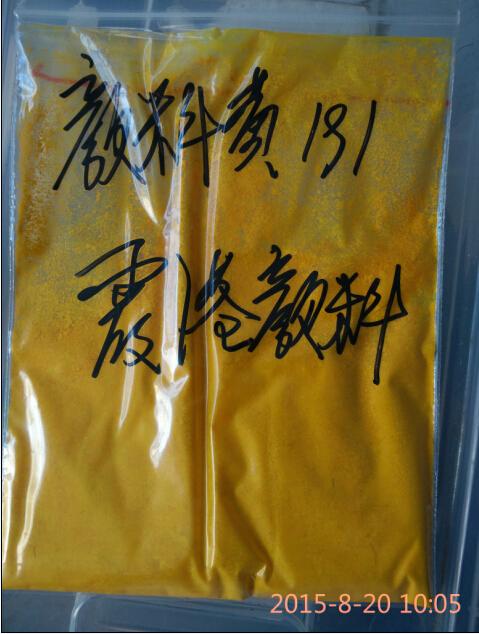 颜料黄191
霞港颜料
2015-8-20 10:05